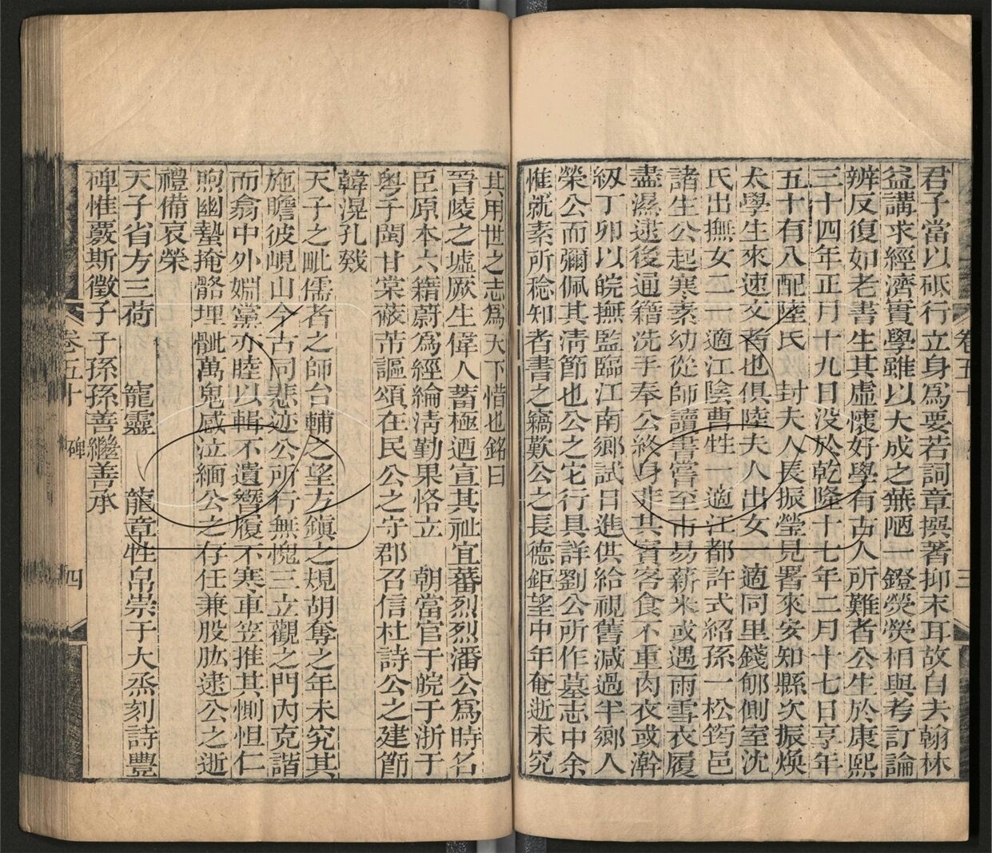 君子當以砥行立身爲要若詞章撰著抑末耳故自夫翰林
益講求經濟實學雖以大成之無陋一鐙熒熒相與考訂論
辨反復如老書生其虛懷好學有古人所難者公生於康熙
三十四年正月十九日没於乾隆十七年二月十七日享年
五十有八配陸氏 封夫人長振瑩見署來安知縣次振煥
太學生來速文者也俱陸夫人出女一適同里錢郇側室沈
氏出撫女二一適江陰曹牲一適江都許式紹孫一松筠邑
諸生公起寒素幼從師讀書嘗至市易薪米或遇雨雪衣履
盡濕逮後通籍洗手奉公終身非其賓客食不重肉衣或澣
紉丁卯以皖撫監臨江南鄉試日進供給視舊減過半鄉人
榮公而彌佩其清節也公之它行具詳劉公所作墓志中余
惟就素所稔知者書之竊歎公之長德鉅望中年奄逝未究
卷五十
三
其用世之志爲天下惜也銘曰
晉陵之墟厥生偉人蓄極迺宣其祉宜蕃烈烈潘公爲時名
臣原本六籍蔚爲經綸淸勤果恪立 朝當官于皖于浙于
粵于閩甘棠蔽芾謳頌在民公之守郡召信杜詩公之建節
韓滉孔戣
天子之毗儒者之師台輔之望方鎮之規胡奪之年未究其
施瞻彼峴山今古同悲迹公所行無愧三立觀之門內克諧
而翕中外婣黨亦睦以輯不遺簪履不寒車笠推其惻怛仁
煦幽蟄掩骼埋骴萬鬼感泣緬公之存任兼股肱逮公之逝
禮備哀榮
天子省方三荷 寵靈 龍章牲帛崇于大烝刻詩豐
碑惟蕞斯徵子子孫孫善繼善承
卷五十
碑
四